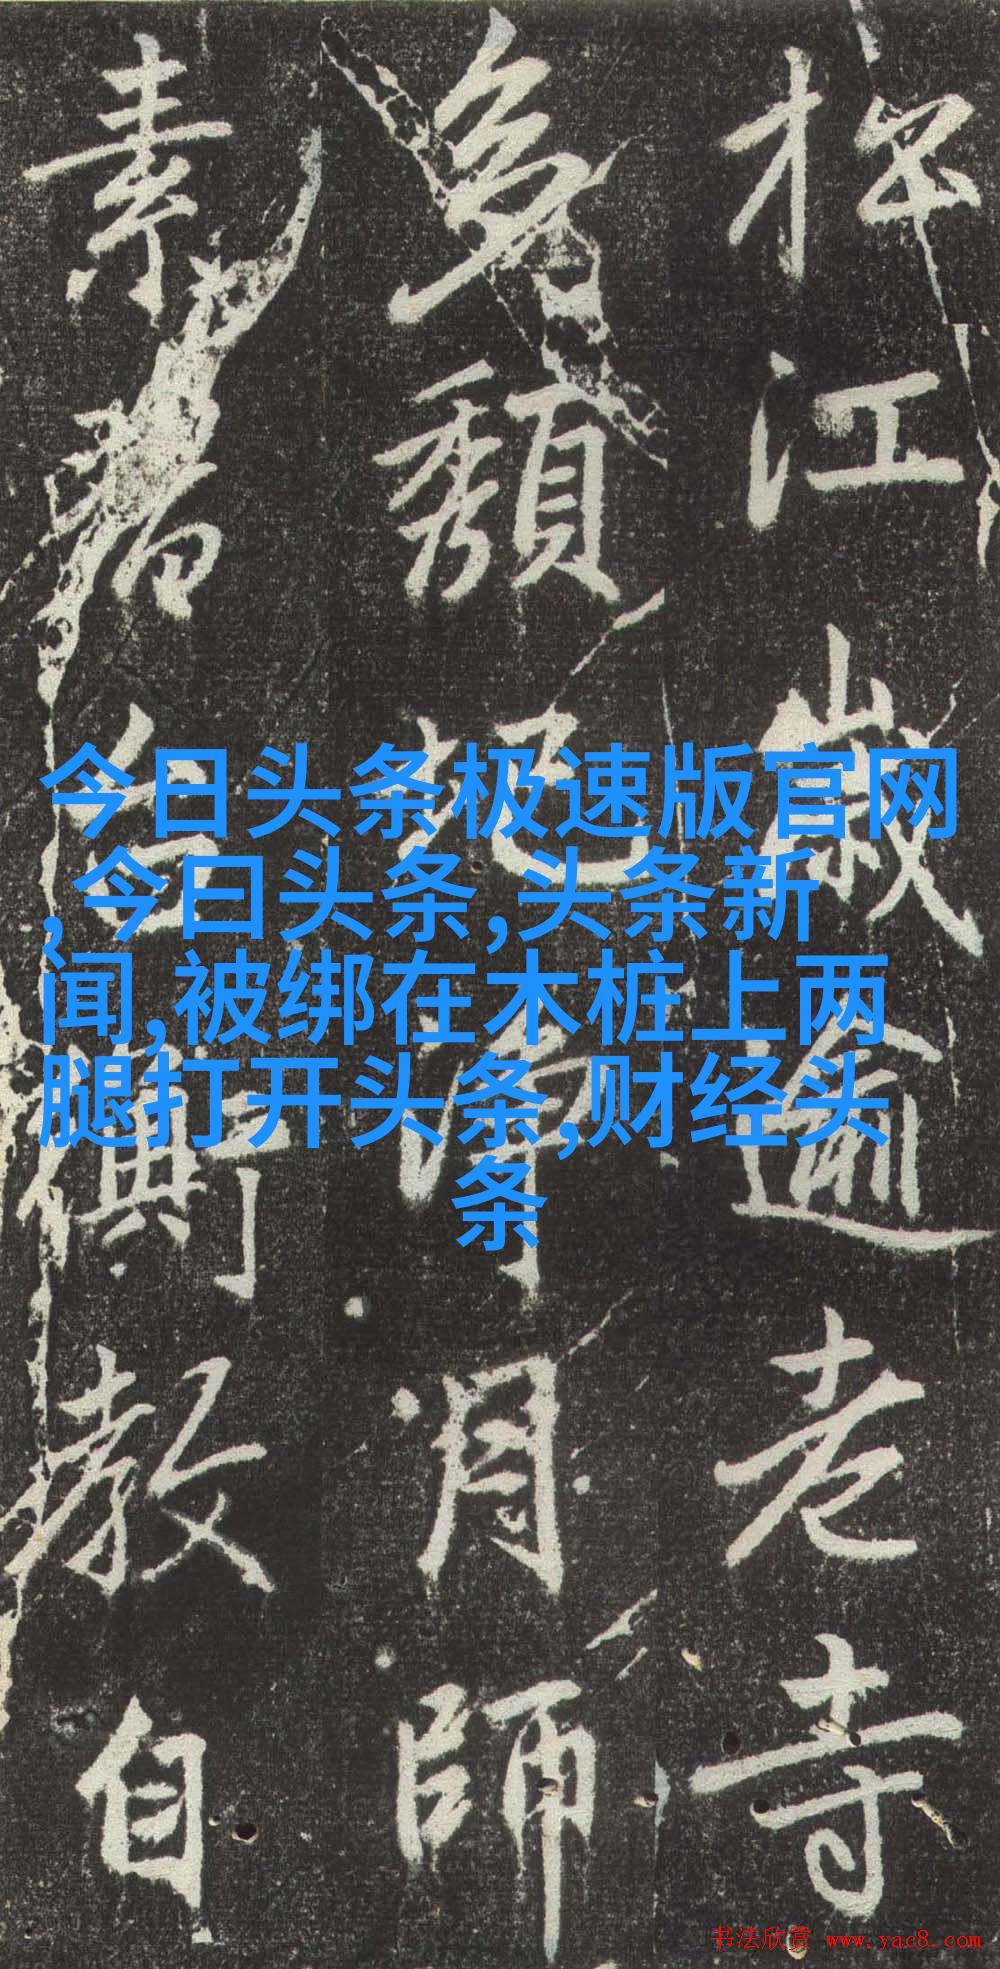 江歲逾老寺
頹月師
素教自
今日头条极速版官网
,今曰头条,头条新
闻,被绑在木桩上两
腿打开头条,财经头
条
书法欣赏 www.yac8.com